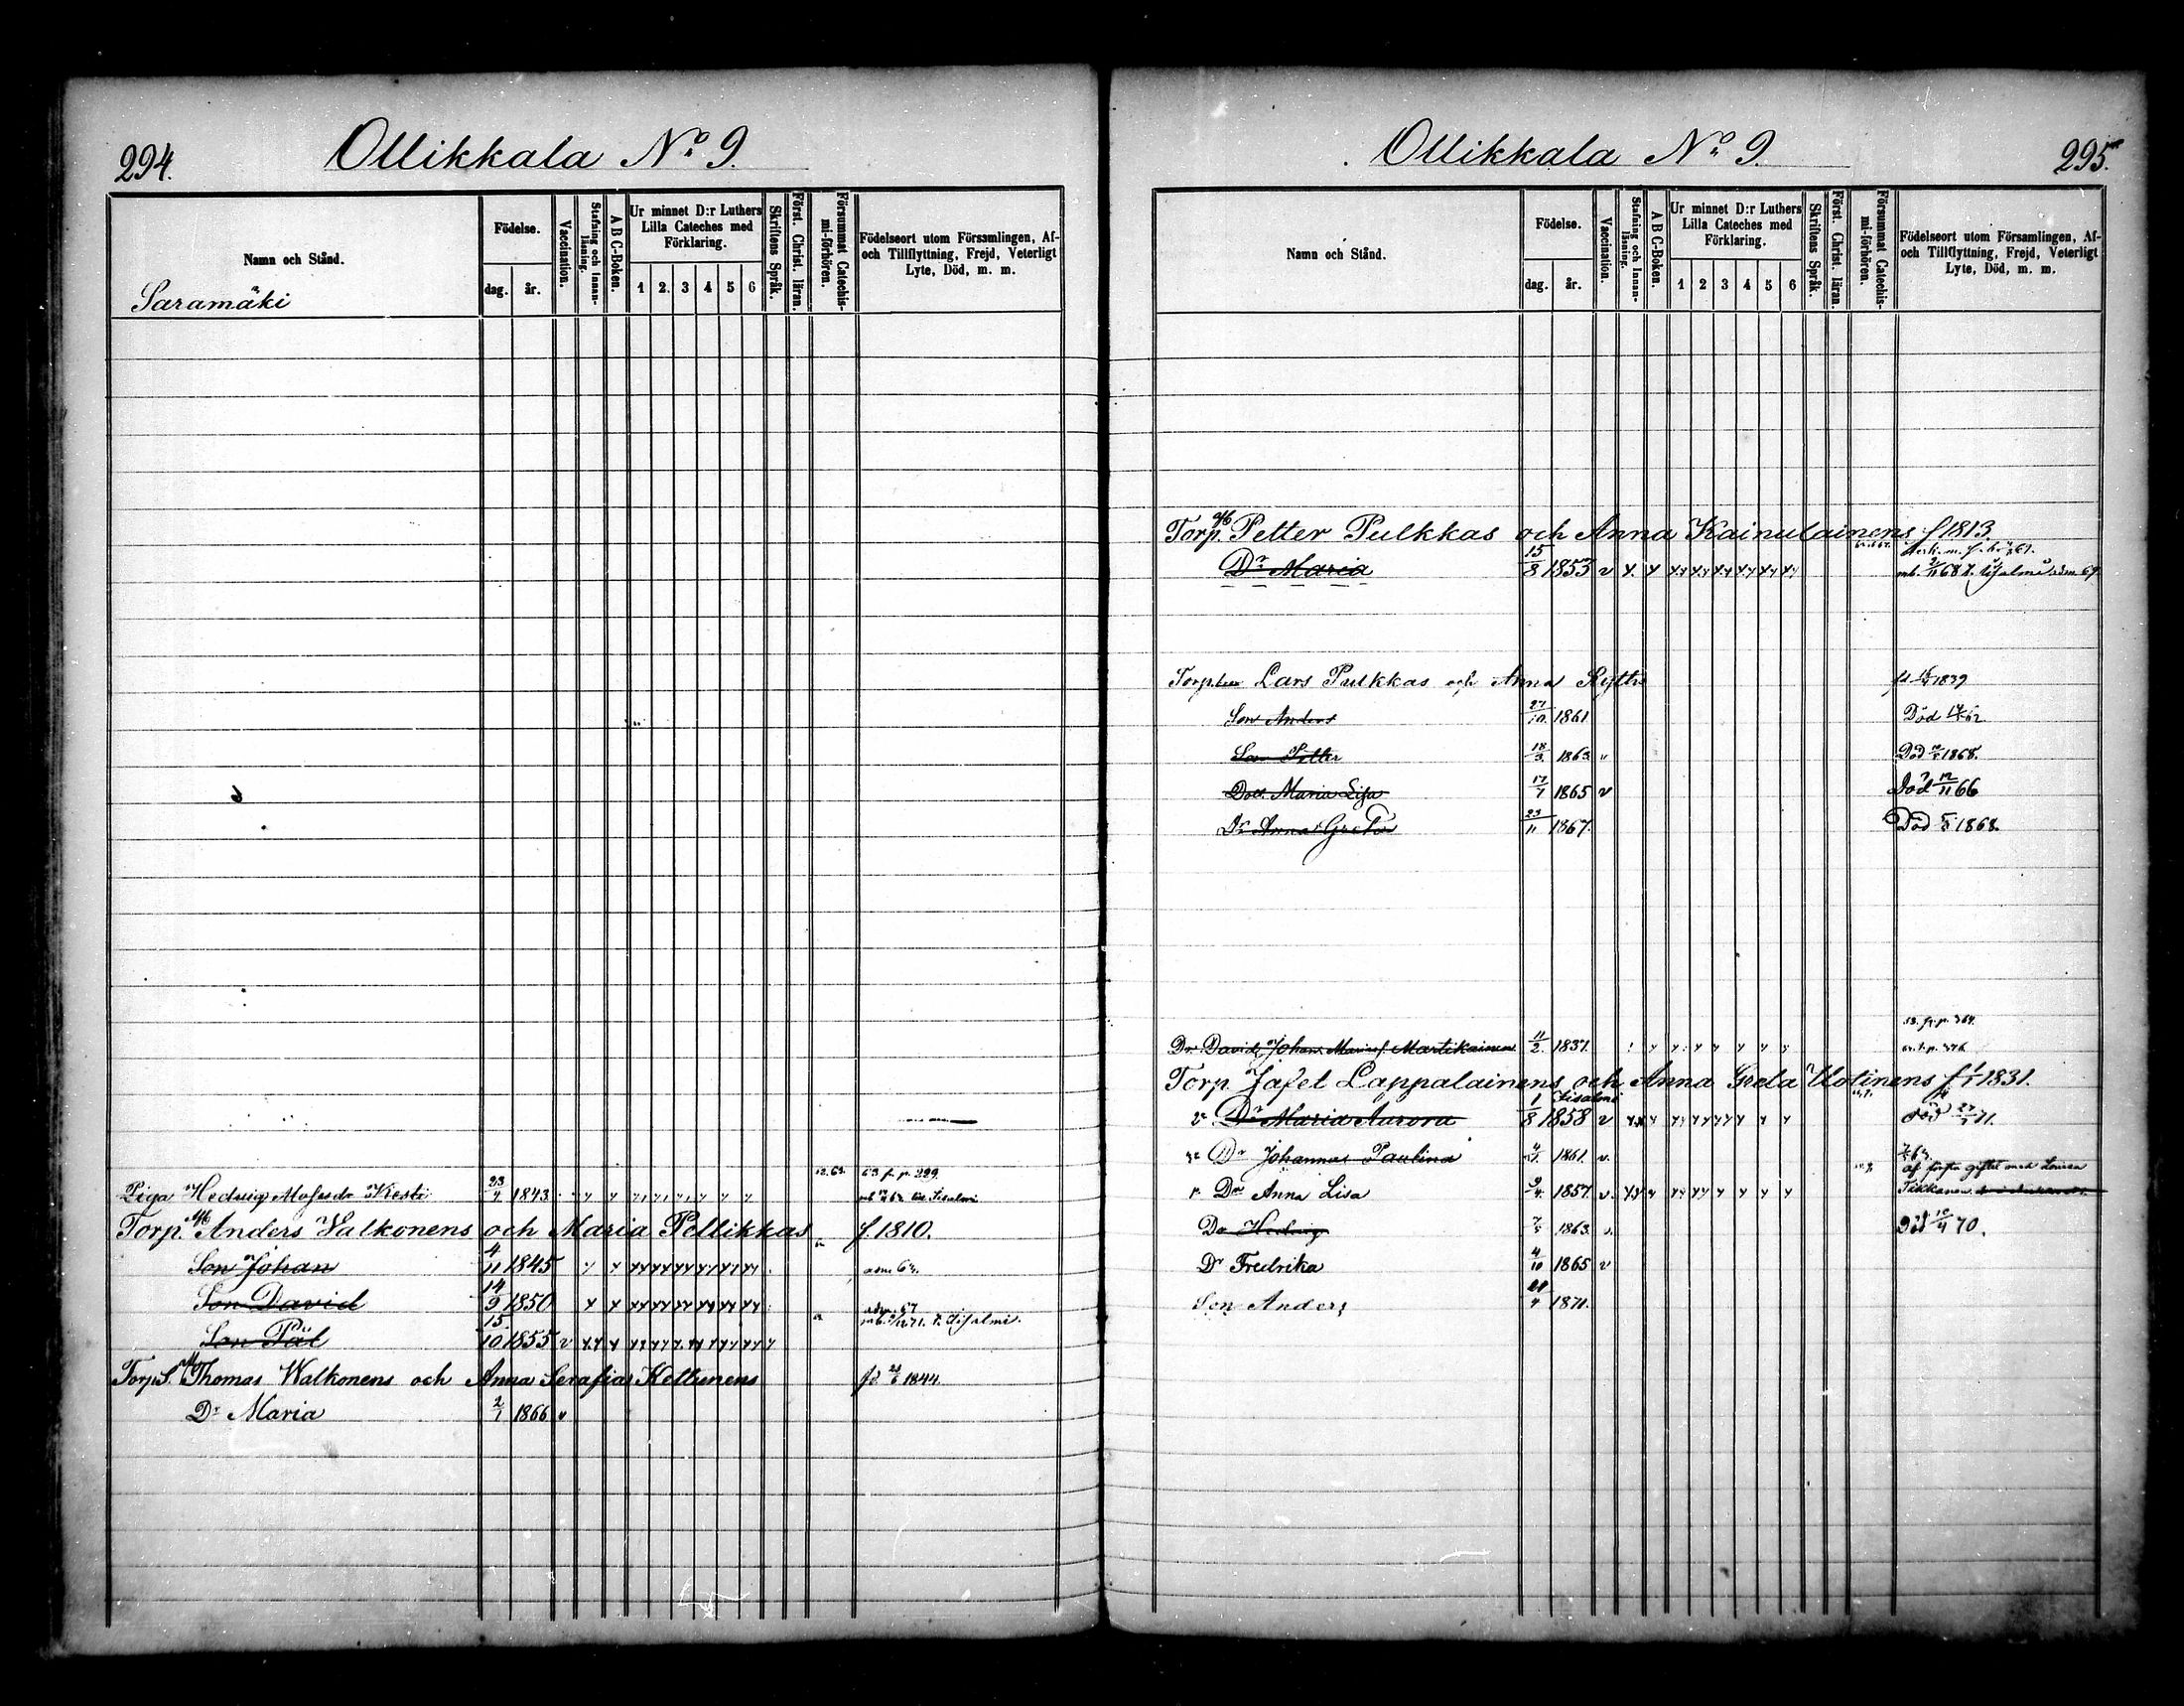 294.
Ollikkala No 9.
Namn och Stånd.
Saramäki
Födelse.
dag.
år.
Vaccination.
Stafning och Innan-
läsning.
A B C-Boken.
Ur minnet D:r Luthers
Lilla Cateches med
Förklaring.
1 2. 3 4 5 6
Skriftens Språk.
Först. Christ. läran.
Försummat Catechis-
mi-förhören.
Födelseort utom Församlingen, Af-
och Tillflyttning, Frejd, Veterligt
Lyte, Död, m. m.
63 f. p. 299.
Piga Hedvig Mosesdr 23/4 1843
Torp. Anders Valkonens och Maria Pellikkas f. 1810.
Son Johan 4/11 1845
Son David 14/9 1850
Son Pål 15/10 1855 v
Torp.S. Thomas Walkonens och Anna Serafia Kettunens 1844.
Dr Maria 2/1 1866 v
Ollikkala No 9.
295.
Namn och Stånd.
Födelse.
dag.
år.
Vaccination.
Stafning och Innan-
läsning.
A B C-Boken.
Ur minnet D:r Luthers
Lilla Cateches med
Förklaring.
1 2 3 4 5 6
Skriftens Språk.
Först. Christ. läran.
Försummat Catechis-
mi-förhören.
Födelseort utom Församlingen, Af-
och Tillflyttning, Frejd, Veterligt
Lyte, Död, m. m.
Torp. Petter Pulkkas och Anna Kainulainens f 1813.
Dr Maria 15/8 1853 v
Lars Pulkkas och Anna 1839
Son Anders 27/10 1861 Död
Son Petter 18/3 1863 Död 1868.
Dott. Maria Lisa 17/1 1865 v Död 12/11 66
Dr Anna Greta 23/11 1867. Död 1868.
Dr David Johan Martikainen 11/2 1837.
Torp. Jafet Lappalainens och Anna Greta Uotinens f 1831.
Iisalmi
Dr Maria Aurora 1/8 1858 v död 71.
Dr Johanna Paulina 1861. v.
af förfr giftet med Lovisa
Dr Anna Lisa 9/4 1857. v. Tikkanen
Dr Hedvig 7/5 1863. v. Död 70.
Dr Fredrika 4/10 1865 v
Son Anders 1871.